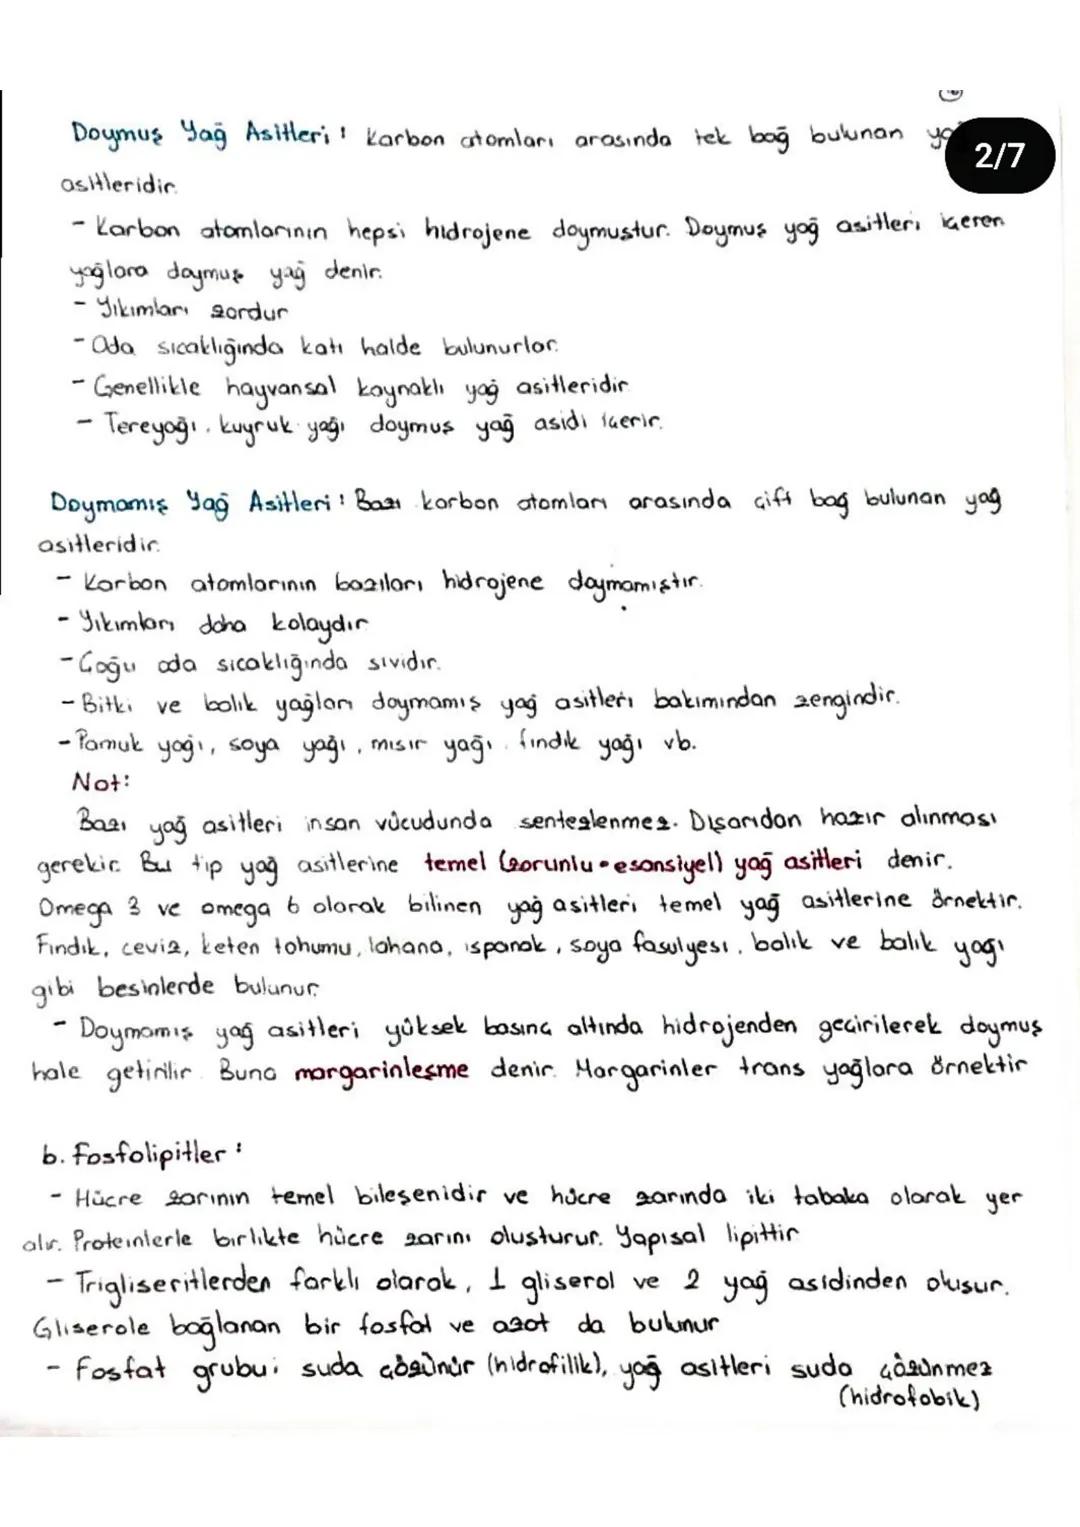 Doymuş Yağ Asitleri: Karbon atomları arasında tek bağ bulunan
2/7
asitleridir.
- Karbon atomlarının hepsi hidrojene doymuştur. Doymuş yağ asitleri içeren
yağlara doymuş yağ denir.
- Yıkımları zordur
- Oda sıcaklığında katı halde bulunurlar.
- Genellikle hayvansal kaynaklı yağ asitleridir
- Tereyağı, kuyruk yağı doymuş yağ asidi içerir.
Doymamış Yağ Asitleri: Bazı karbon atomları arasında çift bağ bulunan yağ
asitleridir.
- Karbon atomlarının bazıları hidrojene doymamıştır.
- Yıkımları daha kolaydır
- Çoğu oda sıcaklığında sıvıdır.
- Bitki ve balık yağları doymamış yağ asitleri bakımından zengindir.
- Pamuk yağı, soya yağı, mısır yağı, fındık yağı vb.
Not:
Bazı yağ asitleri insan vücudunda sentezlenmez. Dışarıdan hazır alınması
gerekir. Bu tip yağ asitlerine temel (zorunlu-esansiyel) yağ asitleri denir.
Omega 3 ve omega 6 olarak bilinen yağ asitleri temel yağ asitlerine örnektir.
Fındık, ceviz, keten tohumu, lahana, ıspanak, soya fasulyesi, balık ve balık yağı
gibi besinlerde bulunur.
- Doymamış yağ asitleri yüksek basınç altında hidrojenden geçirilerek doymuş
hale getirilir. Buna margarinleşme denir. Margarinler trans yağlara örnektir
b. Fosfolipitler:
- Hücre zarının temel bileşenidir ve hücre zarında iki tabaka olarak yer
alır. Proteinlerle birlikte hücre zarını oluşturur. Yapısal lipittir
- Trigliseritlerden farklı olarak, 1 gliserol ve 2 yağ asidinden oluşur.
Gliserole bağlanan bir fosfat ve azot da bulunur
- Fosfat grubu; suda çözünür (hidrofilik), yağ asitleri suda çözünmez
(hidrofobik)